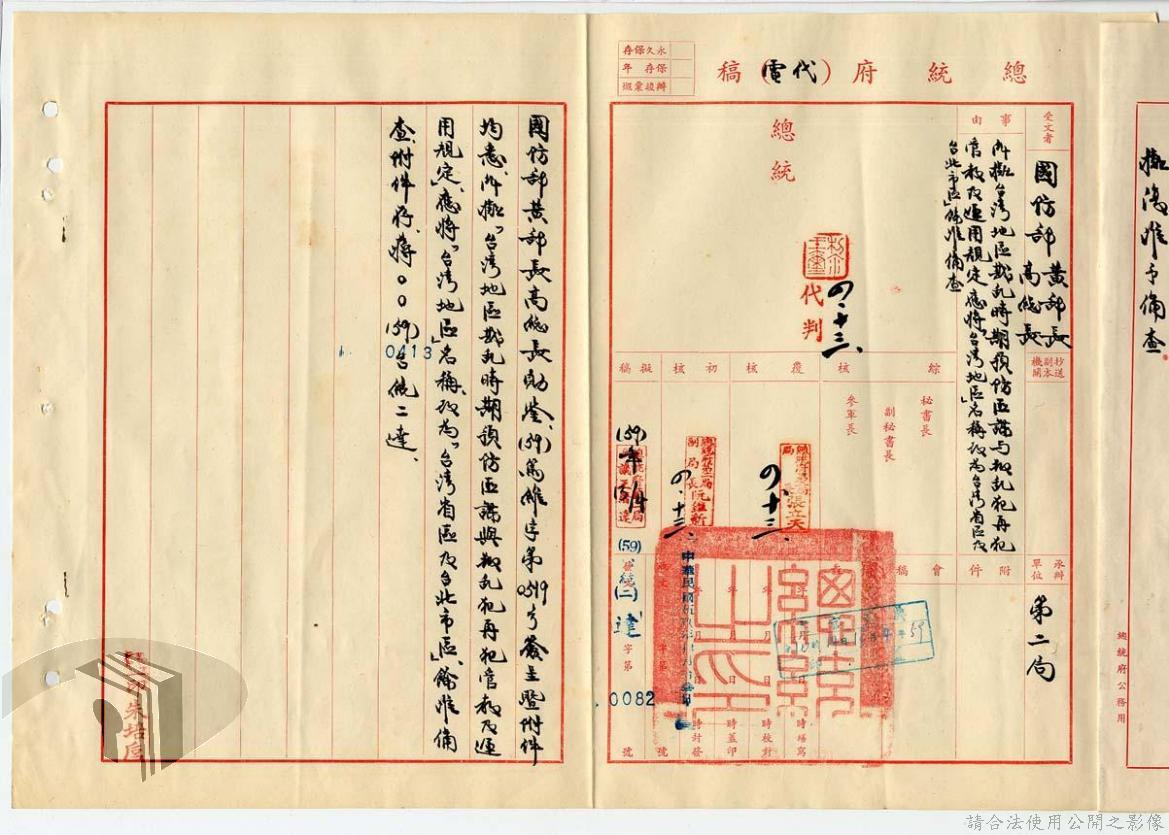 擬准予備查
總統府公務用
總統府(代電)稿
永久保存
保存 年
辦竣彙緝
受文者
國防部 黃部長
高總長
抄送副本機關
承辦單位
第二局
事由
所擬台灣地區戡亂時期預防匪諜與叛亂犯再犯
管教及運用規定應將「台灣地區」名稱改為台灣省區及
台北市區」餘准備查
附件
會稿
總統
代判
四、十三、
綜核
秘書長
副秘書長
參軍長
覆核
張立天
四、十三、
初核
副局長阮維新
四、十三、
擬稿
(59)年
中華民國
(59)台統(二)達字第 0082 號
時繕寫
時校對
時蓋印
時封發
國防部黃部長高總長勛鑒、(59)篤維字第0519號簽呈暨附件
均悉、所擬「台灣地區戡亂時期預防匪諜與叛亂犯再犯管教及運
用規定」應將「台灣地區」名稱、改為「台灣省區及台北市區」、餘准備
查、附件存、蔣○○(59)台統二達、
0413
請合法使用公開之影像